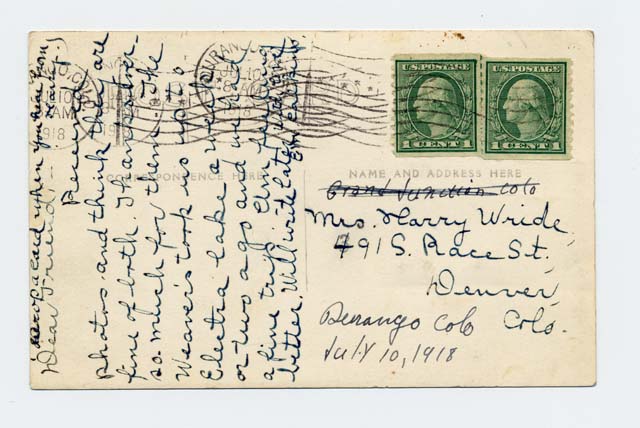 a card when you hear from
Dear Friend:-
Received
photos and think they are
fine of both. Thanks ever-
so much for them. The
Weaver's took us up to
Electra lake a week
or two ago and we had
a fine trip.
better. Will write later.
CORRESPONDENCE HERE
DURANGO, COLO.
JUL 10
AM
1918
U.S. POSTAGE
1 CENT 1
U.S. POSTAGE
1 CENT 1
NAME AND ADDRESS HERE
Grand Junction Colo
Mrs. Harry Wride,
491 S. Race St.,
Denver,
Colo.
Derango Colo
July 10, 1918